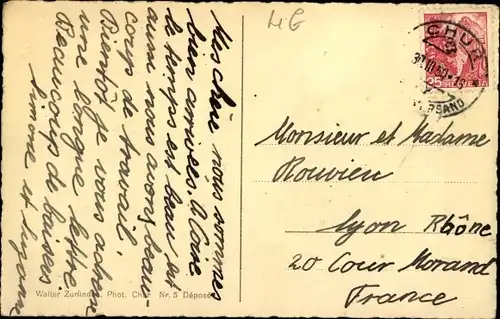 Mes chéris nous sommes
bien arrivées. A Coire
le temps est beau et
aussi nous avons beau-
coup de travail.
Bientôt je vous
une longue lettre
Beaucoup de baisers
Simone et
4G
CHUR
VERSAND
25 HELVETIA
Monsieur et Madame
Rouvieu
Lyon Rhône
20 Cour Morand
France
Walter Zurlinden. Phot. Chur Nr. 5 Déposé